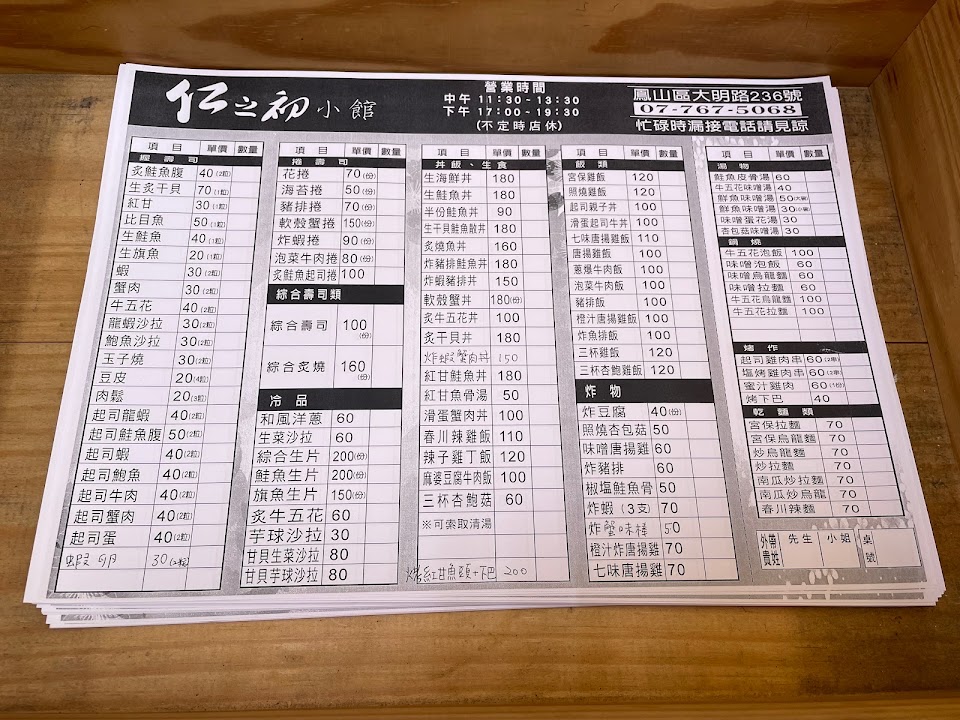 仁之初小館
營業時間
中午 11:30-13:30
下午 17:00-19:30
(不定時店休)
鳳山區大明路236號
07-767-5068
忙碌時漏接電話請見諒
項目 單價 數量
握壽司
炙鮭魚腹 40(2粒)
生炙干貝 70(1粒)
紅甘 30(1粒)
比目魚 50(1粒)
生鮭魚 40(1粒)
生旗魚 20(1粒)
蝦 30(2粒)
蟹肉 30(2粒)
牛五花 40(2粒)
龍蝦沙拉 30(2粒)
鮑魚沙拉 30(2粒)
玉子燒 30(2粒)
豆皮 20(4粒)
肉鬆 20(3粒)
起司龍蝦 40(2粒)
起司鮭魚腹 50(2粒)
起司蝦 40(2粒)
起司鮑魚 40(2粒)
起司牛肉 40(2粒)
起司蟹肉 40(2粒)
起司蛋 40(2粒)
蝦卵 30(2粒)
項目 單價 數量
捲壽司
花捲 70(份)
海苔捲 50(份)
豬排捲 70(份)
軟殼蟹捲 150(份)
炸蝦捲 90(份)
泡菜牛肉捲 80(份)
炙鮭魚起司捲 100
綜合壽司類
綜合壽司 100(份)
綜合炙燒 160(份)
冷品
和風洋蔥 60
生菜沙拉 60
綜合生片 200(份)
鮭魚生片 200(份)
旗魚生片 150(份)
炙牛五花 60
芋球沙拉 30
甘貝生菜沙拉 80
甘貝芋球沙拉 80
項目 單價 數量
丼飯、生食
生海鮮丼 180
生鮭魚丼 180
半份鮭魚丼 90
生干貝鮭魚散丼 180
炙燒魚丼 160
炸豬排鮭魚丼 180
炸蝦豬排丼 150
軟殼蟹丼 180(份)
炙牛五花丼 100
炙干貝丼 180
炸蝦蟹肉丼 150
紅甘鮭魚丼 180
紅甘魚骨湯 50
滑蛋蟹肉丼 100
春川辣雞飯 110
辣子雞丁飯 120
麻婆豆腐牛肉飯 100
三杯杏鮑菇 60
※可索取清湯
烤紅甘魚頭+下巴 200
項目 單價 數量
飯類
宮保雞飯 120
照燒雞飯 120
起司親子丼 100
滑蛋起司牛丼 100
七味唐揚雞飯 110
唐揚雞飯 100
蔥爆牛肉飯 100
泡菜牛肉飯 100
豬排飯 100
橙汁唐揚雞飯 100
炸魚排飯 100
三杯雞飯 120
三杯杏鮑雞飯 120
炸物
炸豆腐 40(份)
照燒杏包菇 50
味噌唐揚雞 60
炸豬排 60
椒塩鮭魚骨 50
炸蝦(3支) 70
炸蟹味棒 50
橙汁炸唐揚雞 70
七味唐揚雞 70
項目 單價 數量
湯物
鮭魚皮骨湯 60
牛五花味噌湯 40
鮮魚味噌湯 50(大碗)
鮮魚味噌湯 30(小碗)
味噌蛋花湯 30
杏包菇味噌湯 30
鍋燒
牛五花泡飯 100
味噌泡飯 60
味噌烏龍麵 60
味噌拉麵 60
牛五花烏龍麵 100
牛五花拉麵 100
烤作
起司雞肉串 60(2串)
塩烤雞肉串 60(2串)
蜜汁雞肉 60(1份)
烤下巴 40
乾麵類
宮保拉麵 70
宮保烏龍麵 70
炒烏龍麵 70
炒拉麵 70
南瓜炒拉麵 70
南瓜炒烏龍 70
春川辣麵 70
外帶貴姓 先生 小姐 桌號